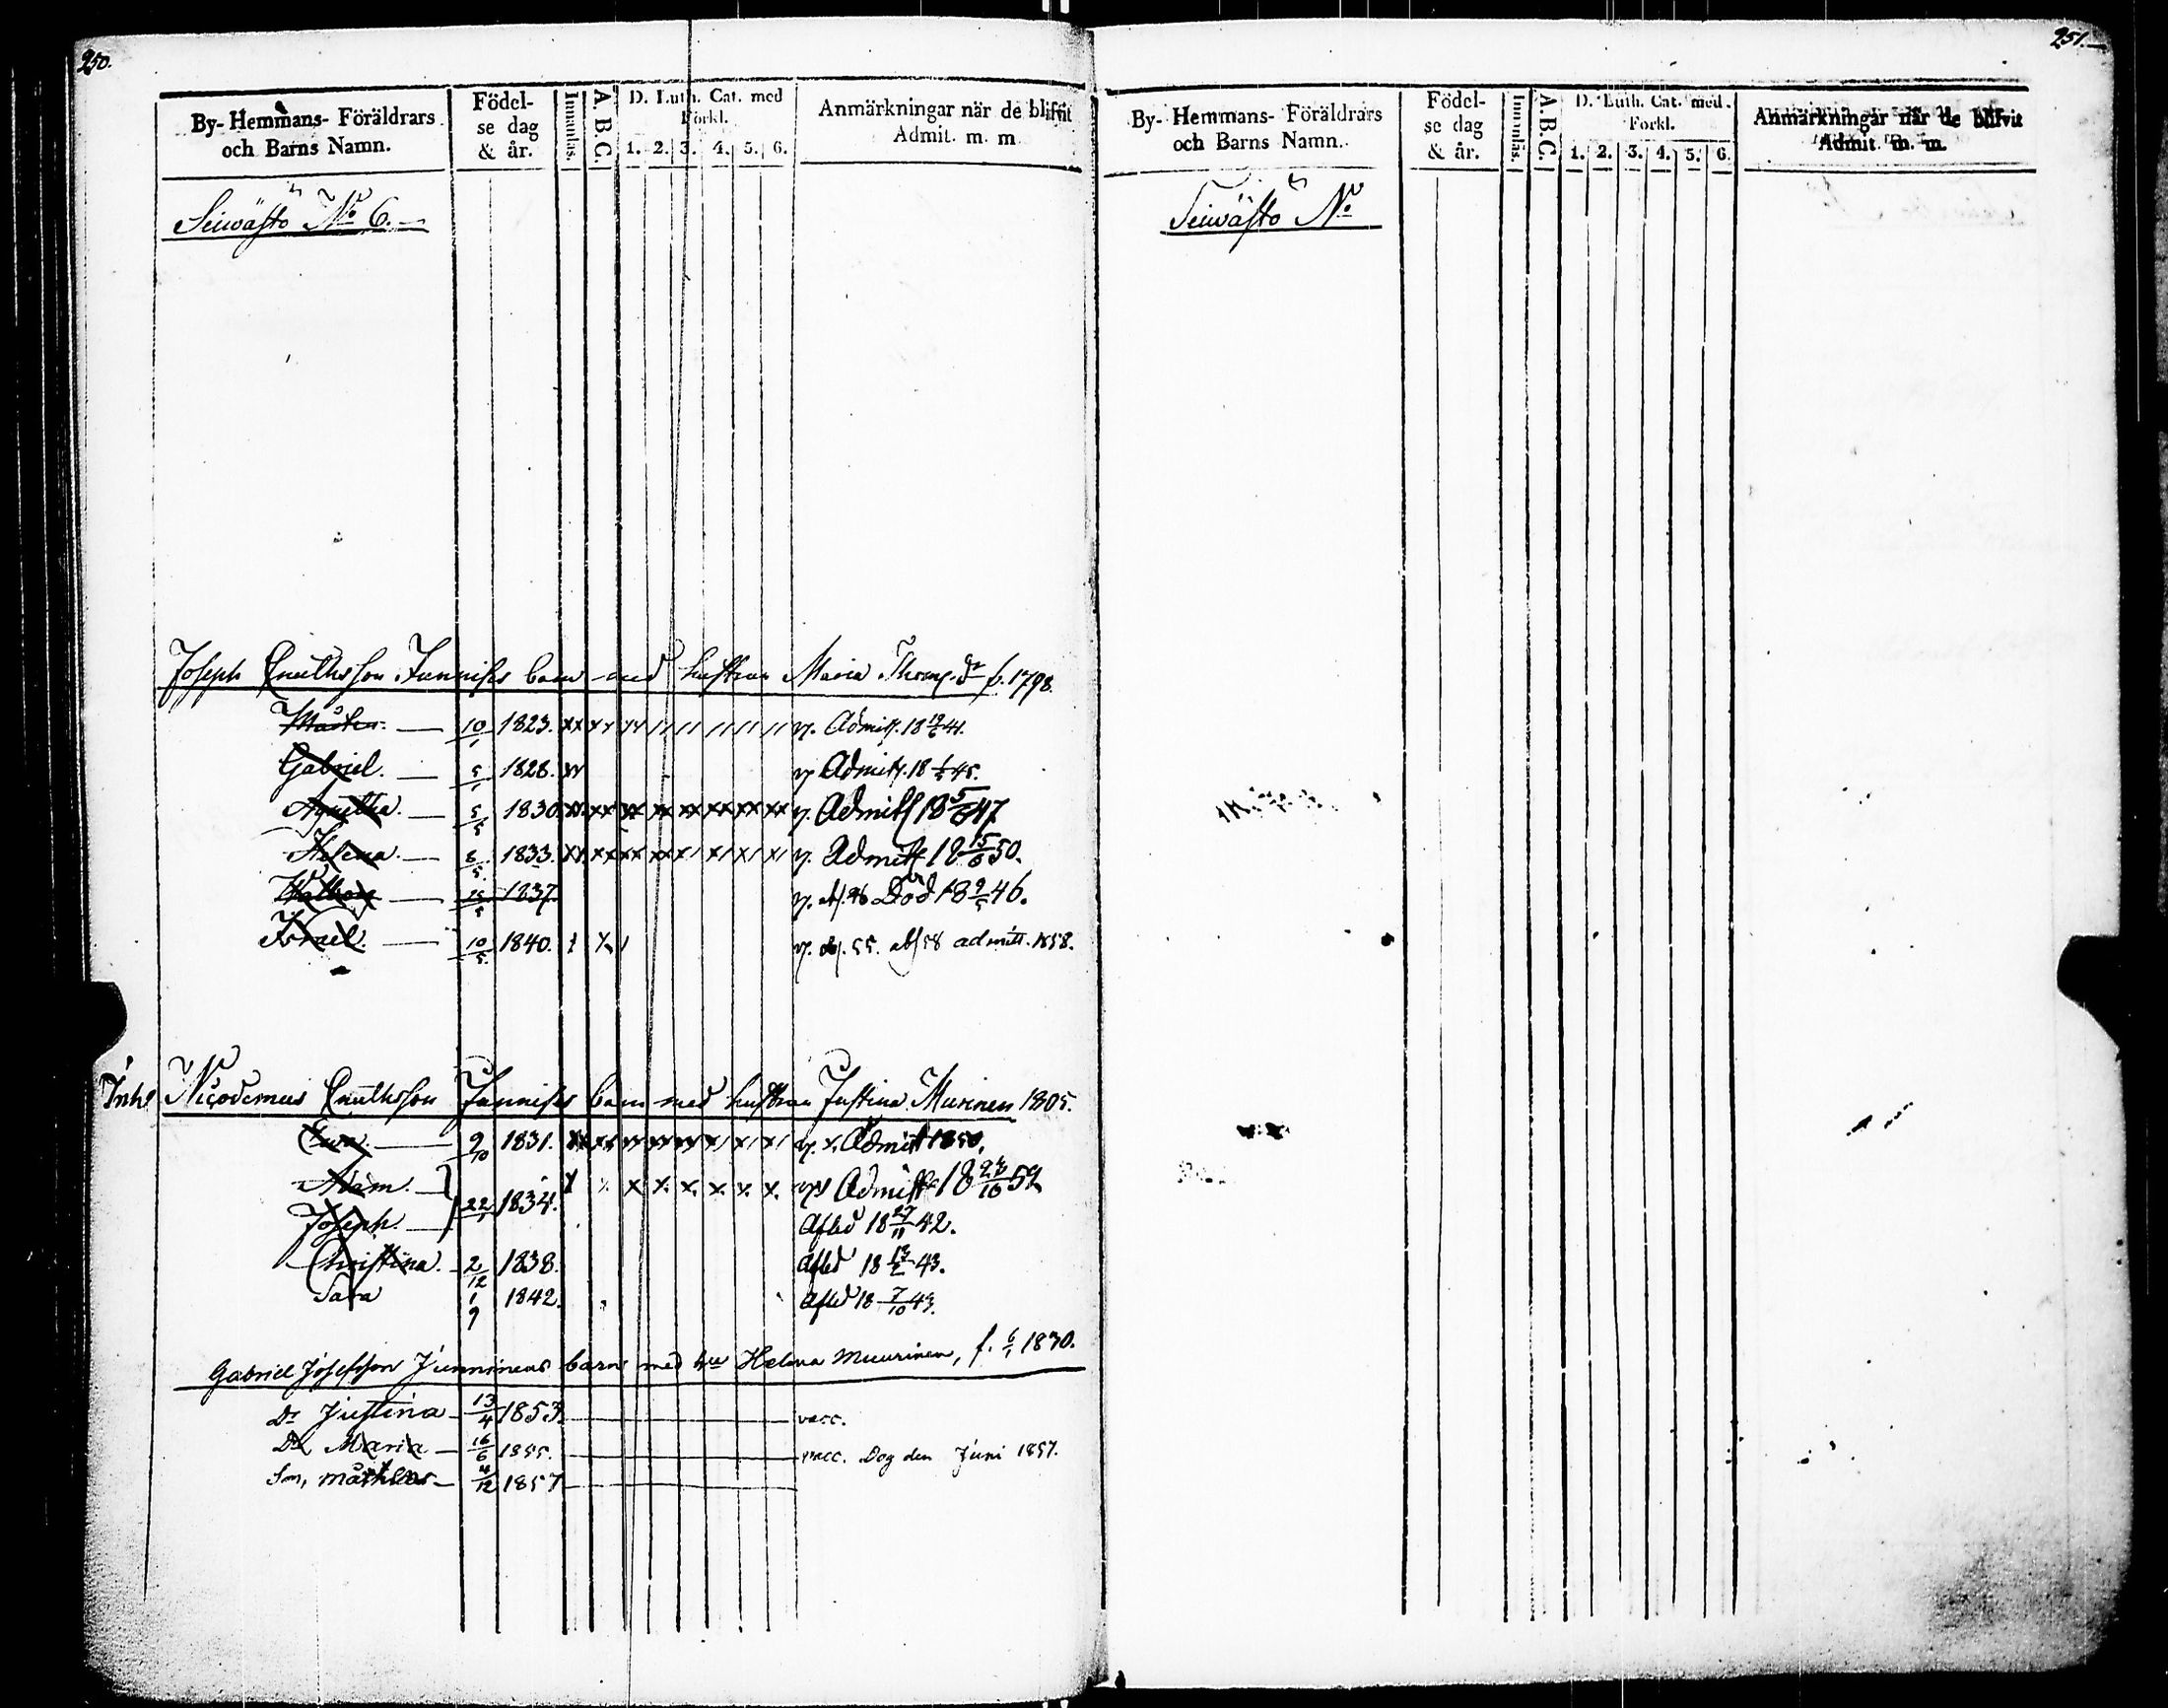 250.
By- Hemmans- Föräldrars och Barns Namn.
Födel- se dag & år.
Innanläs.
A. B. C.
D. Luth. Cat. med Förkl.
1. 2. 3. 4. 5. 6.
Anmärkningar när de blifvit Admit. m. m
Seiwästö No 6.
Joseph Knuthsson Junnises barn med hustrun Maria Thom. dr f. 1798.
10/1 1823. Admitt. 18 41.
Gabriel. 5/1 1828. Admitt. 18 45.
Agnetha. 5/5 1830 Admitt 18 5/6 47
Helena. 8/5 1833. Admitt 18 15/6 50.
1837. Död 18 9/5 46.
Israel. 10/5 1840. 55. abs 58 admitt. 1858.
Inh. Nicodemus Knuthsson Junnises barn med hustrun Justina Murinen 1805.
Ewa. 9/10 1831. Admitt 1850.
Adam. 22/1 1834. Admitt 18 23/10 52
Joseph. Afled 18 27/11 42.
Christina. 2/12 1838. Afled 18 13/2 43.
Sara 1/9 1842. Afled 18 7/10 43.
Gabriel Josefsson Junninens barn med hu Helena Muurinen, f. 6/1 1830.
Dr Justina 13/4 1853. vacc.
Dr Maria 16/6 1855. vacc. Dog den Juni 1857.
Sn, Mathias 4/12 1857
251.
By- Hemmans- Föräldrars och Barns Namn.
Födel- se dag & år.
Innanläs.
A. B. C.
D. Luth. Cat. med. Förkl.
1. 2. 3. 4. 5. 6.
Anmärkningar när de blifvit Admit. m. m.
Seiwästö No